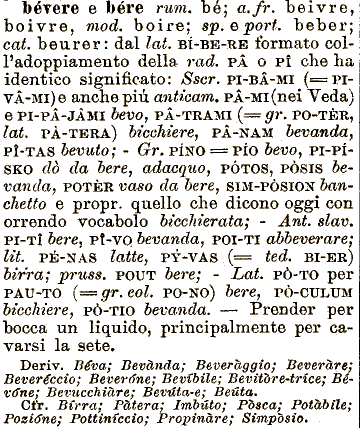 bévere e bére rum. bé; a.fr. beivre,
boivre, mod. boire; sp. e port. beber;
cat. beurer: dal lat. BÍ-BE-RE formato col-
l'adoppiamento della rad. PÂ o PÎ che ha
identico significato: Sscr. PI-BÂ-MI (= PI-
VÂ-MI) e anche più anticam. PÂ-MI (nei Veda)
e PI-PÂ-JÂMI bevo, PÂ-TRAMI (= gr. PO-TÈR,
lat. PÀ-TERA) bicchiere, PÂ-NAM bevanda,
PÎ-TAS bevuto; - Gr. PÍNO = PÍO bevo, PI-PÍ-
SKO dò da bere, adacquo, PÓTOS, PÒSIS be-
vanda, POTÈR vaso da bere, SIM-PÒSION ban-
chetto e propr. quello che dicono oggi con
orrendo vocabolo bicchierata; - Ant. slav.
PI-TÎ bere, PÎ-VO bevanda, POI-TI abbeverare;
lit. PÉ-NAS latte, PÝ-VAS (= ted. BI-ER)
birra; pruss. POUT bere; - Lat. PÒ-TO per
PAU-TO (= gr. eol. PO-NO) bere, PÒ-CULUM
bicchiere, PÒ-TIO bevanda. — Prender per
bocca un liquido, principalmente per ca-
varsi la sete.
Deriv. Béva; Bevànda; Beveràggio; Beveràre;
Beveréccio; Beveróne; Bevíbile; Bevitóre-tríce; Be-
vóne; Bevucchiàre; Bevúta-e; Beúta.
Cfr. Bírra; Pàtera; Imbúto; Pòsca; Potàbile;
Pozióne; Pottiníccio; Propinàre; Simpòsio.